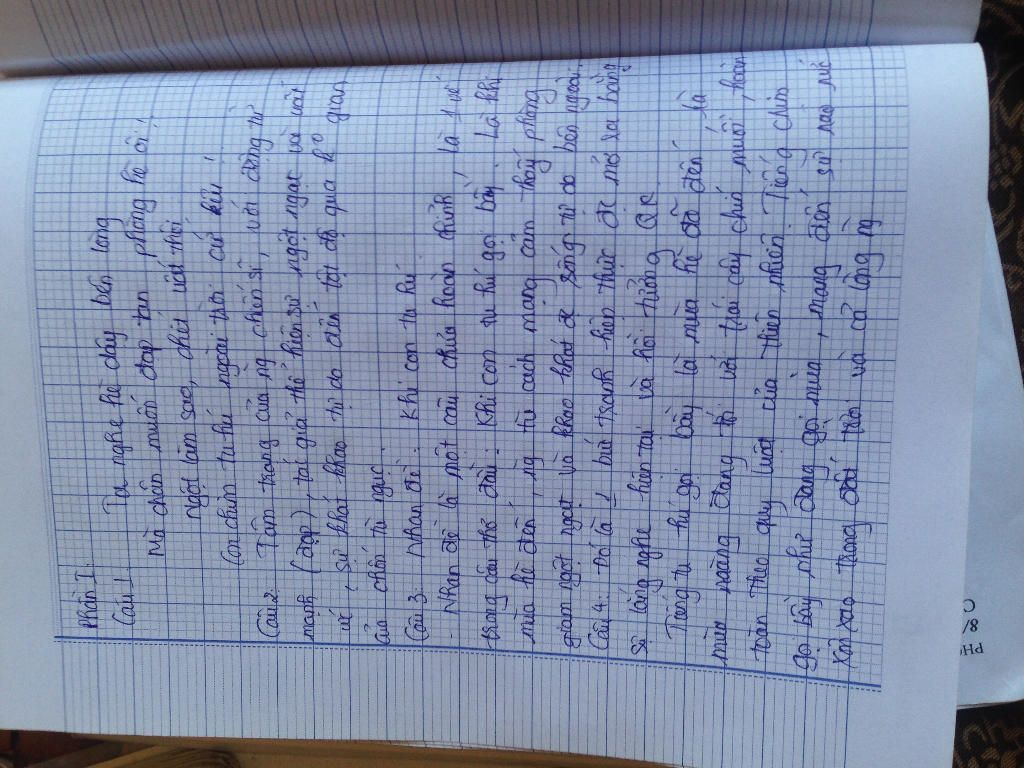 Phần I:
Câu 1. Ta nghe hè dậy bên lòng
Mà chân muốn đạp tan phòng hè ôi!
Ngột làm sao, chết uất thôi
Con chim tu hú ngoài trời cứ kêu!
Câu 2. Tâm trạng của ng chiến sĩ, với động từ
mạnh (đạp), tác giả thể hiện sự ngột ngạt và uất
ức, sự khát khao tự do đến tột độ qua ko gian
của chốn tù ngục.
Câu 3. Nhan đề: Khi con tu hú.
- Nhan đề là một câu chưa hoàn chỉnh, là 1 vế
trong câu thơ đầu: Khi con tu hú gọi bầy. Là khi
mùa hè đến, ng tù cách mạng cảm thấy phòng
giam ngột ngạt và khao khát đc sống tự do bên ngoài.
Câu 4: Đó là 1 bức tranh hiện thực đc mở ra bằng
sự lắng nghe hiện tại và hồi tưởng QK.
Tiếng tu hú gọi bầy là mùa hè đã đến là
mùa màng đang tới với trái cây chín muồi, hoàn
toàn theo quy luật của thiên nhiên. Tiếng chim
gọi bầy như đang gọi mùa, mang đến sự náo nức
xôn xao trong đất trời và cả lòng ng
PHÒ
8/
C